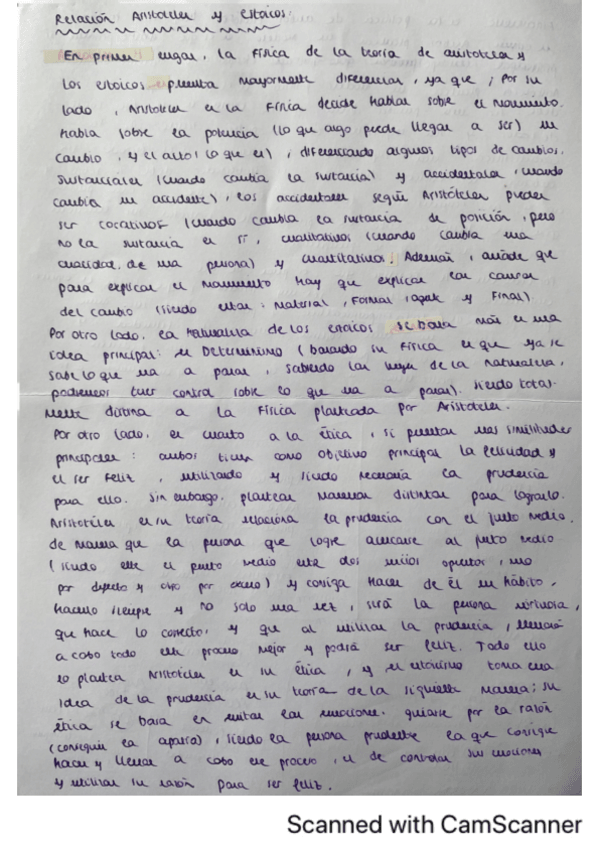 Relación Aristóteles y estoicos:
En primer lugar, la física de la teoría de aristóteles y
los estoicos presenta mayormente diferencias, ya que, Por su
lado, Aristóteles en la Física decide hablar sobre el movimiento.
Habla sobre la potencia (lo que algo puede llegar a ser) un
cambio, y el acto (lo que es), diferenciando algunos tipos de cambios.
Sustanciales (cuando cambia la sustancia) y accidentales, cuando
cambia un accidente), los accidentales según Aristóteles pueden
ser locativos (cuando cambia la sustancia de posición, pero
no la sustancia en sí, cualitativos (cuando cambia una
cualidad, de una persona) y cuantitativos. Además, añade que
para explicar el movimiento hay que explicar las causas
del cambio (siendo estas: Material, Formal, agente y Final).
Por otro lado, la Naturaleza de los estoicos se basa más en una
idea principal: el Determinismo (basando su física en que ya se
sabe lo que va a pasar, sabiendo las leyes de la naturaleza,
podremos tener control sobre lo que va a pasar). Siendo total-
mente distina a la Física planteada por Aristóteles.
Por otro lado, en cuanto a la ética, si presentan más similitudes
principales: ambos tienen como objetivo principal la felicidad y
el ser feliz, utilizando y siendo necesaria la prudencia
para ello. Sin embargo, plantean maneras distintas para lograrlo.
Aristóteles en su teoría relaciona la prudencia con el justo medio,
de manera que la persona que logre acercarse al justo medio
(siendo este el punto medio entre dos vicios opuestos, uno
por defecto y otro por exceso) y consiga hacer de él un hábito,
hacerlo siempre y no solo una vez, será la persona virtuosa,
que hace lo correcto, y que al utilizar la prudencia, llevará
a cabo todo este proceso mejor y podrá ser feliz. Todo ello
lo plantea Aristóteles en su ética, y el estoicismo toma una
idea de la prudencia en su teoría de la siguiente manera; su
ética se basa en evitar las emociones, guiarse por la razón
(conseguir la apatía), siendo la persona prudente la que consigue
hacer y llevar a cabo ese proceso, el de controlar sus emociones
y utilizar su razón para ser feliz.
Scanned with CamScanner